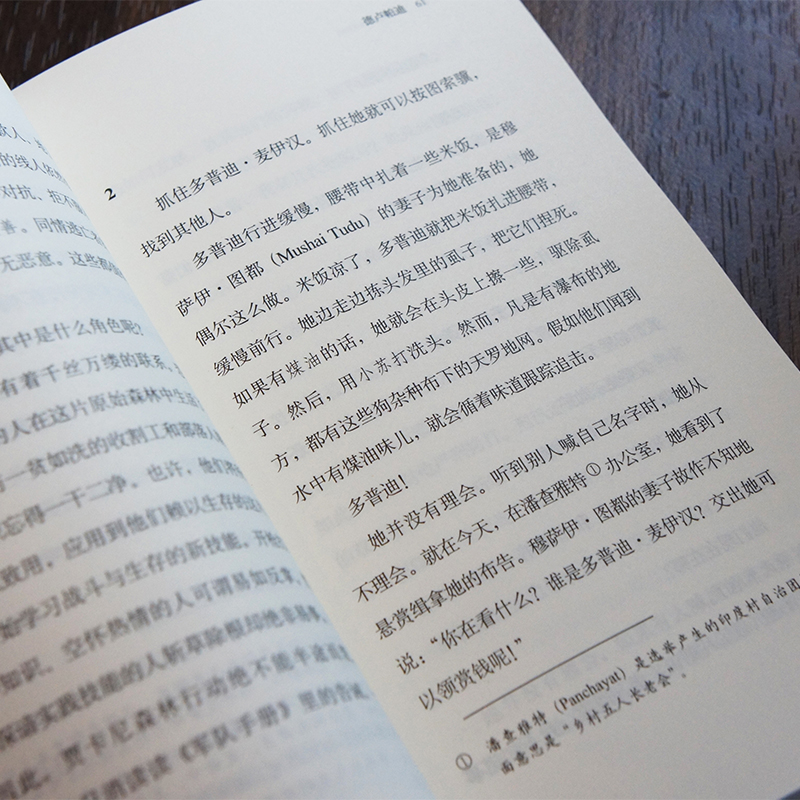 的线人依
对抗、拒不
善。同情逃亡
无恶意。这些都
其中是什么角色呢？
有着千丝万缕的联系，
的人在这片原始森林中生
一贫如洗的收割工和部落人
忘得一干二净。也许，他们
致用，应用到他们赖以生存的
始学习战斗与生存的新技能。开
知识、空怀热情的人可谓易如反掌，
实践技能的人斩草除根却
此，贾卡尼森林行动绝不能半途
读读《军队手册》里的告诫
德卢帕迪 61
2
抓住多普迪·麦伊汉。抓住她就可以按图索骥，
找到其他人。
多普迪行进缓慢，腰带中扎着一些米饭，是穆
萨伊·图都（Mushai Tudu）的妻子为她准备的，她
偶尔这么做。米饭凉了，多普迪就把米饭扎进腰带，
缓慢前行。她边走边拣头发里的虱子，把它们捏死。
如果有煤油的话，她就会在头皮上擦一些，驱除虱
子。然后，用小苏打洗头。然而，凡是有瀑布的地
方，都有这些狗杂种布下的天罗地网。假如他们闻到
水中有煤油味儿，就会循着味道跟踪追击。
多普迪！
她并没有理会。听到别人喊自己名字时，她从
不理会。就在今天，在潘查雅特①办公室，她看到了
悬赏缉拿她的布告。穆萨伊·图都的妻子故作不知地
说：“你在看什么？谁是多普迪·麦伊汉？交出她可
以领赏钱呢！”
① 潘查雅特（Panchayat）是选举产生的印度村自治团
面意思是“乡村五人长老会”。